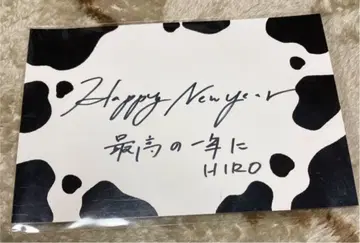 Happy New Year
最高の一年に
HIRO